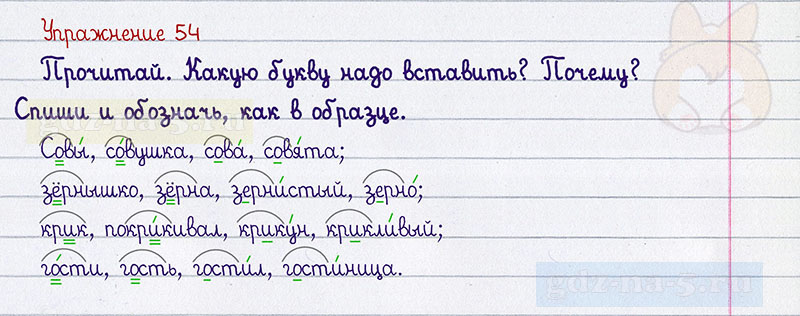 Упражнение 54
Прочитай. Какую букву надо вставить? Почему?
Спиши и обозначь, как в образце.
Совы́, со́вушка, сова́, совя́та;
зёрнышко, зёрна, зерни́стый, зерно́;
крик, покри́кивал, крику́н, крикли́вый;
го́сти, гость, гости́л, гости́ница.
gdz-na-5.ru